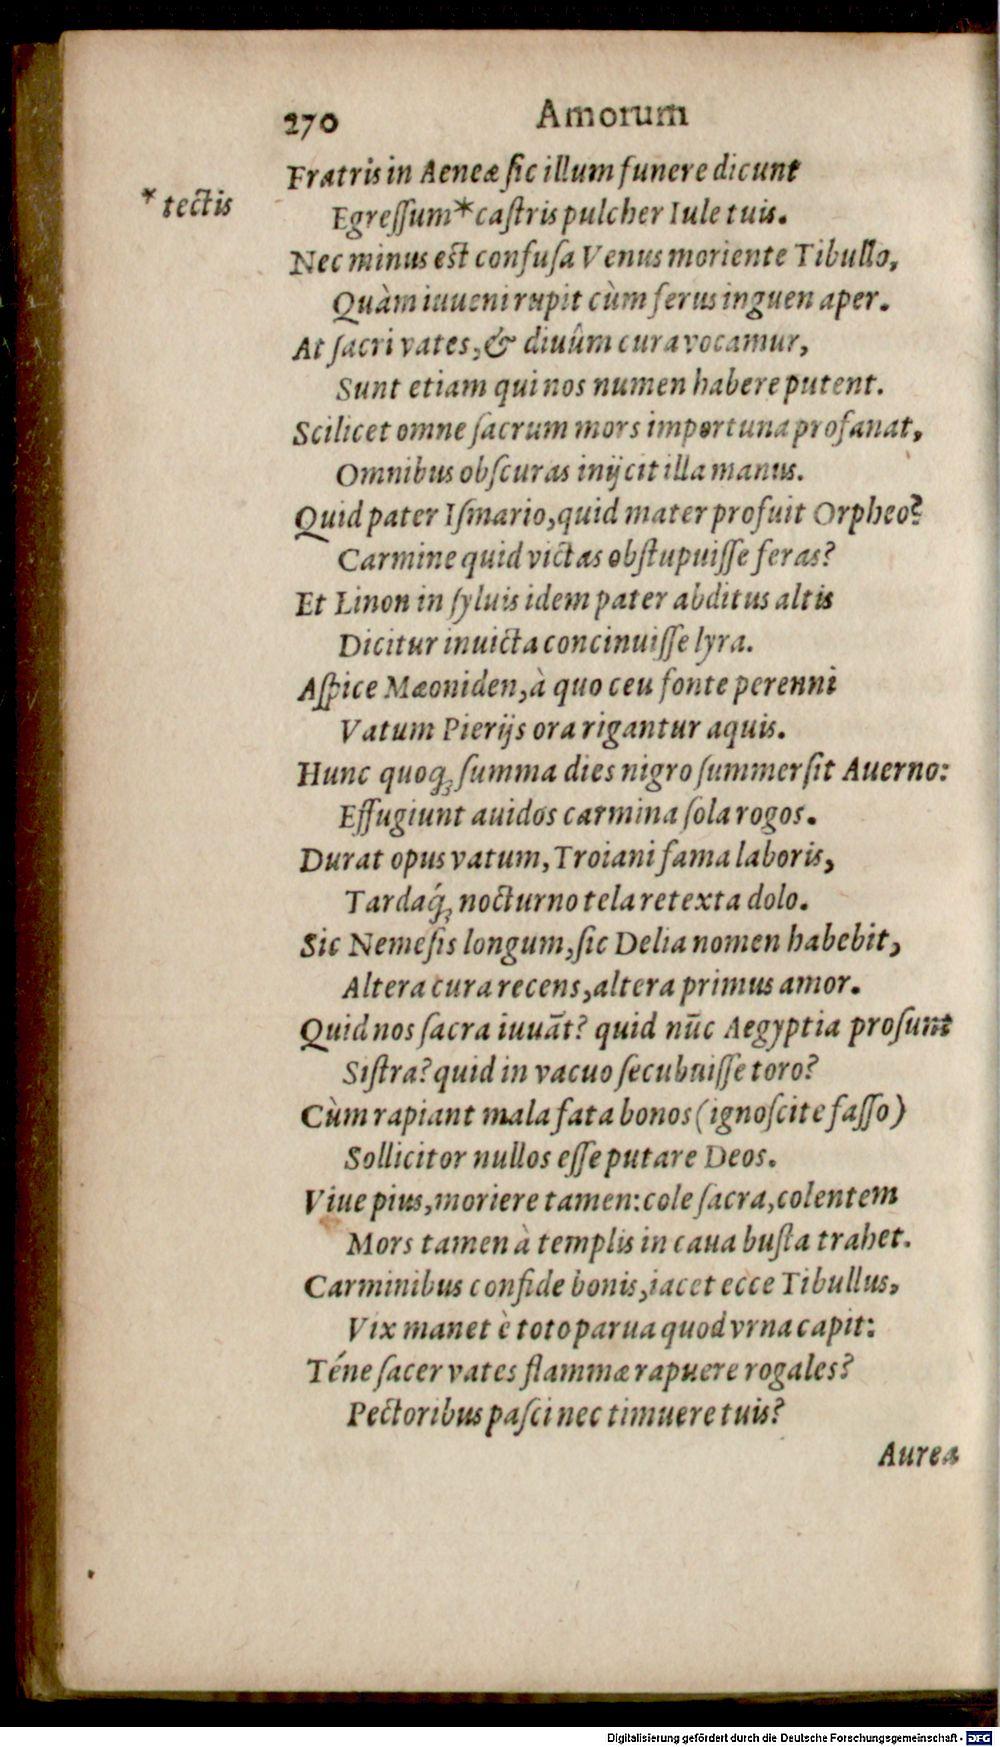 270 Amorum
Fratris in Aeneæ ſic illum funere dicunt
* tectis
Egreſſum* caſtris pulcher Iule tuis.
Nec minus est confuſa Venus moriente Tibullo,
Quàm iuueni rupit cùm ferus inguen aper.
At ſacri vates, & diuûm cura vocamur,
Sunt etiam qui nos numen habere putent.
Scilicet omne ſacrum mors importuna profanat,
Omnibus obſcuras inijcit illa manus.
Quid pater Iſmario, quid mater profuit Orpheo?
Carmine quid victas obſtupuiſſe feras?
Et Linon in ſyluis idem pater abditus altis
Dicitur inuicta concinuiſſe lyra.
Aſpice Mæoniden, à quo ceu fonte perenni
Vatum Pierijs ora rigantur aquis.
Hunc quoq; ſumma dies nigro ſummerſit Auerno:
Effugiunt auidos carmina ſola rogos.
Durat opus vatum, Troiani fama laboris,
Tardaq́; nocturno tela retexta dolo.
Sic Nemeſis longum, ſic Delia nomen habebit,
Altera cura recens, altera primus amor.
Quid nos ſacra iuuāt? quid nūc Aegyptia proſunt
Siſtra? quid in vacuo ſecubuiſſe toro?
Cùm rapiant mala fata bonos (ignoſcite faſſo)
Sollicitor nullos eſſe putare Deos.
Viue pius, moriere tamen: cole ſacra, colentem
Mors tamen à templis in caua buſta trahet.
Carminibus confide bonis, iacet ecce Tibullus,
Vix manet è toto parua quod vrna capit:
Téne ſacer vates flammæ rapuere rogales?
Pectoribus paſci nec timuere tuis?
Aurea
Digitalisierung gefördert durch die Deutsche Forschungsgemeinschaft - DFG